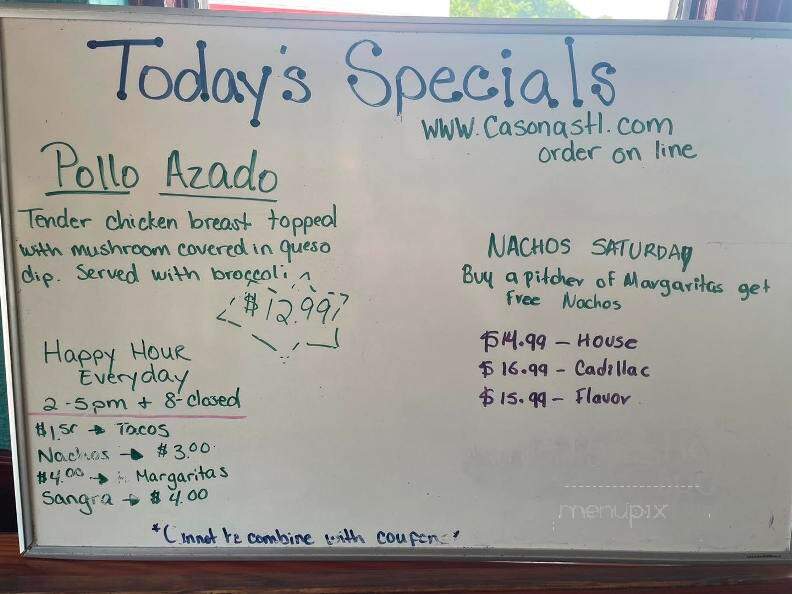 Today's Specials
www.Casonastl.com
order on line
Pollo Azado
Tender chicken breast topped
with mushroom covered in queso
dip. Served with broccoli
$12.99
NACHOS SATURDAY
Buy a pitcher of Margaritas get
free Nachos
$14.99 - House
$16.99 - Cadillac
$15.99 - Flavor
Happy Hour
Everyday
2-5pm + 8-closed
$1.50 → Tacos
Nachos → $3.00
$4.00 → Margaritas
Sangra → $4.00
combine with
menupix